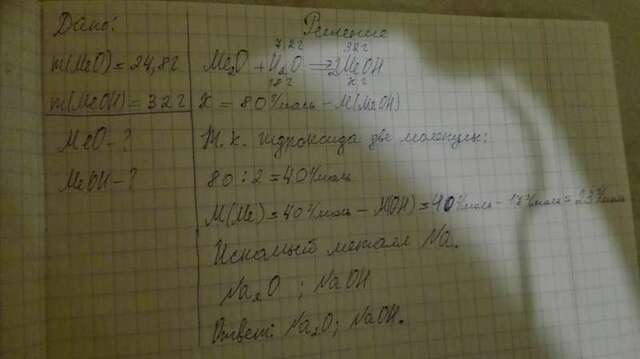 Дано:
m(MeO) = 24,8г
m(MeOH) = 32г
MeO - ?
MeOH - ?
Решение
7,2г 32г
Me₂O + H₂O ⇒ 2MeOH
xг
X = 80 г/моль - M(MeOH)
Т.к. гидроксида две молекулы:
80 : 2 = 40 г/моль
M(Me) = 40 г/моль - M(OH) = 40 г/моль - 17 г/моль = 23 г/моль
Искомый металл Na.
Na₂O ; NaOH
Ответ: Na₂O; NaOH.